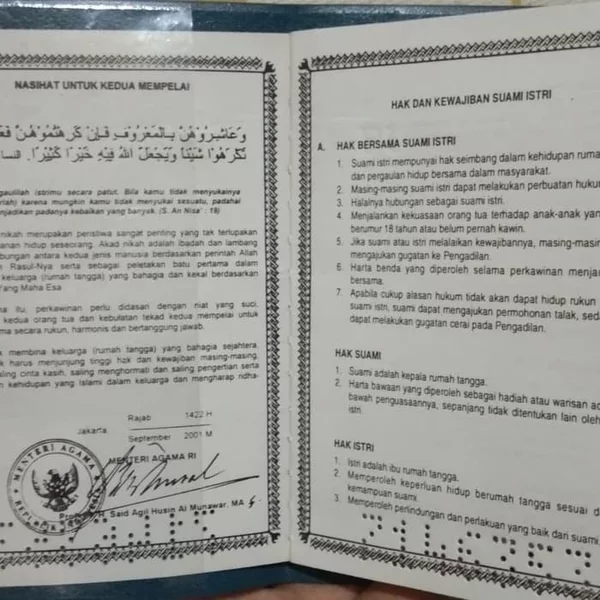 NASIHAT UNTUK KEDUA MEMPELAI
وَعَاشِرُوْهُنَّ بِالْمَعْرُوْفِ فَإِنْ كَرِهْتُمُوْهُنَّ
تَكْرَهُوْا شَيْئًا وَيَجْعَلَ اللهُ فِيْهِ خَيْرًا كَثِيْرًا.
istrimu secara patut. Bila kamu tidak menyukainya
karena mungkin kamu tidak menyukai sesuatu, padahal
padanya kebaikan yang banyak. (S. An Nisa' : 19)
nikah merupakan peristiwa sangat penting yang tak terlupakan
hidup seseorang. Akad nikah adalah ibadah dan lambang
antara kedua jenis manusia berdasarkan perintah Allah
Rasul-Nya serta sebagai peletakan batu pertama dalam
keluarga (rumah tangga) yang bahagia dan kekal berdasarkan
Yang Maha Esa
itu, perkawinan perlu didasari dengan niat yang suci,
kedua orang tua dan kebulatan tekad kedua mempelai untuk
secara rukun, harmonis dan bertanggung jawab.
membina keluarga (rumah tangga) yang bahagia sejahtera,
harus menjunjung tinggi hak dan kewajiban masing-masing,
cinta kasih, saling menghormati dan saling pengertian serta
kehidupan yang Islami dalam keluarga dan mengharap ridha-
Rajab 1422 H
Jakarta,
September 2001 M
MENTERI AGAMA RI
MENTERI AGAMA
H. Said Agil Husin Al Munawar, MA
HAK DAN KEWAJIBAN SUAMI ISTRI
A. HAK BERSAMA SUAMI ISTRI
1. Suami istri mempunyai hak seimbang dalam kehidupan
dan pergaulan hidup bersama dalam masyarakat.
2. Masing-masing suami istri dapat melakukan perbuatan
3. Halalnya hubungan sebagai suami istri.
4. Menjalankan kekuasaan orang tua terhadap anak-anak
berumur 18 tahun atau belum pernah kawin.
5. Jika suami atau istri melalaikan kewajibannya,
mengajukan gugatan ke Pengadilan.
6. Harta benda yang diperoleh selama perkawinan
bersama.
7. Apabila cukup alasan hukum tidak akan dapat hidup rukun
suami istri, suami dapat mengajukan permohonan talak,
dapat melakukan gugatan cerai pada Pengadilan.
HAK SUAMI
1. Suami adalah kepala rumah tangga.
2. Harta bawaan yang diperoleh sebagai hadiah atau warisan
bawah penguasaannya, sepanjang tidak ditentukan lain oleh
istri.
HAK ISTRI
1. Istri adalah ibu rumah tangga.
2. Memperoleh keperluan hidup berumah tangga sesuai
kemampuan suami.
3. Memperoleh perlindungan dan perlakuan yang baik dari suami